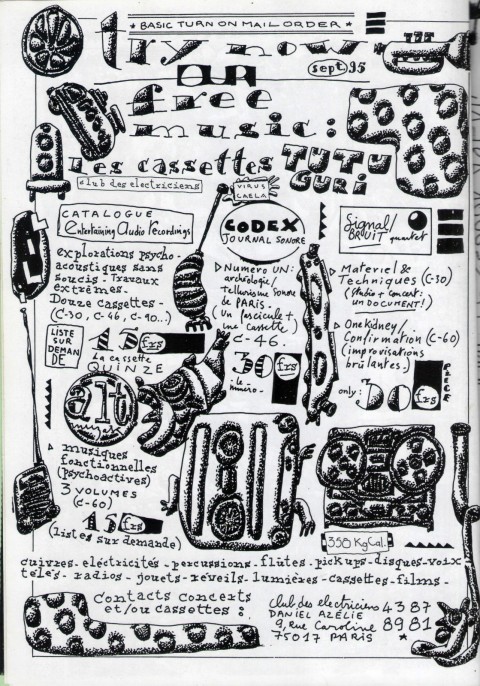 ★ BASIC TURN ON MAIL ORDER ★
try now
OUR
sept. 95
free
music:
Les cassettes TUTU
GURi
club des electriciens
VIRUS
CATALOGUE
Entertaining Audio Recordings
explorations psycho-
acoustiques sans
soucis - Travaux
extrêmes.
Douze cassettes -
(C-30, C-46, C-90...)
LISTE
SUR
DEMAN
DE
15 frs
La cassette
QUINZE
alt
musiques
fonctionnelles
(psychoactives)
3 VOLUMES
(C-60)
15 frs
(listes sur demande)
CODEX
JOURNAL SONORE
Numero UN:
archéologie/
tellurisme Sonore
de PARIS.
(un fascicule +
une cassette)
C-46.
30 frs
- le
numero -
Signal/
BRUIT quartet
Materiel &
Techniques (C-30)
(studio + concert:
UN DOCUMENT!)
One Kidney/
Confirmation (C-60)
(improvisations
brûlantes.)
only: 30 frs
PIECE
350 KgCal.
cuivres - eléctricités - percussions - flûtes - pickups - disques - voix
télés - radios - jouets - réveils - lumières - cassettes - films -
contacts concerts
et/ou cassettes:
Club des electriciens 43 87
DANIEL AZÉLIE 89 81
9, rue Caroline
75017 PARIS ★